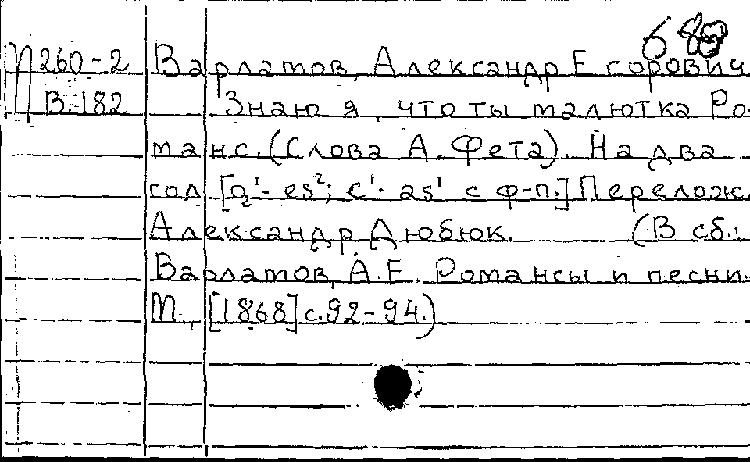 П 260-2 Варламов, Александр Егорович
В-182 Знаю я, что ты малютка Ро-
манс. (Слова А. Фета). На два
сол. [g¹- es²; c¹- as¹ с ф-п.] Перелож.
Александр Дюбюк. (В сб.:
Варламов, А.Е. Романсы и песни.
М., [1868] с.92-94.)